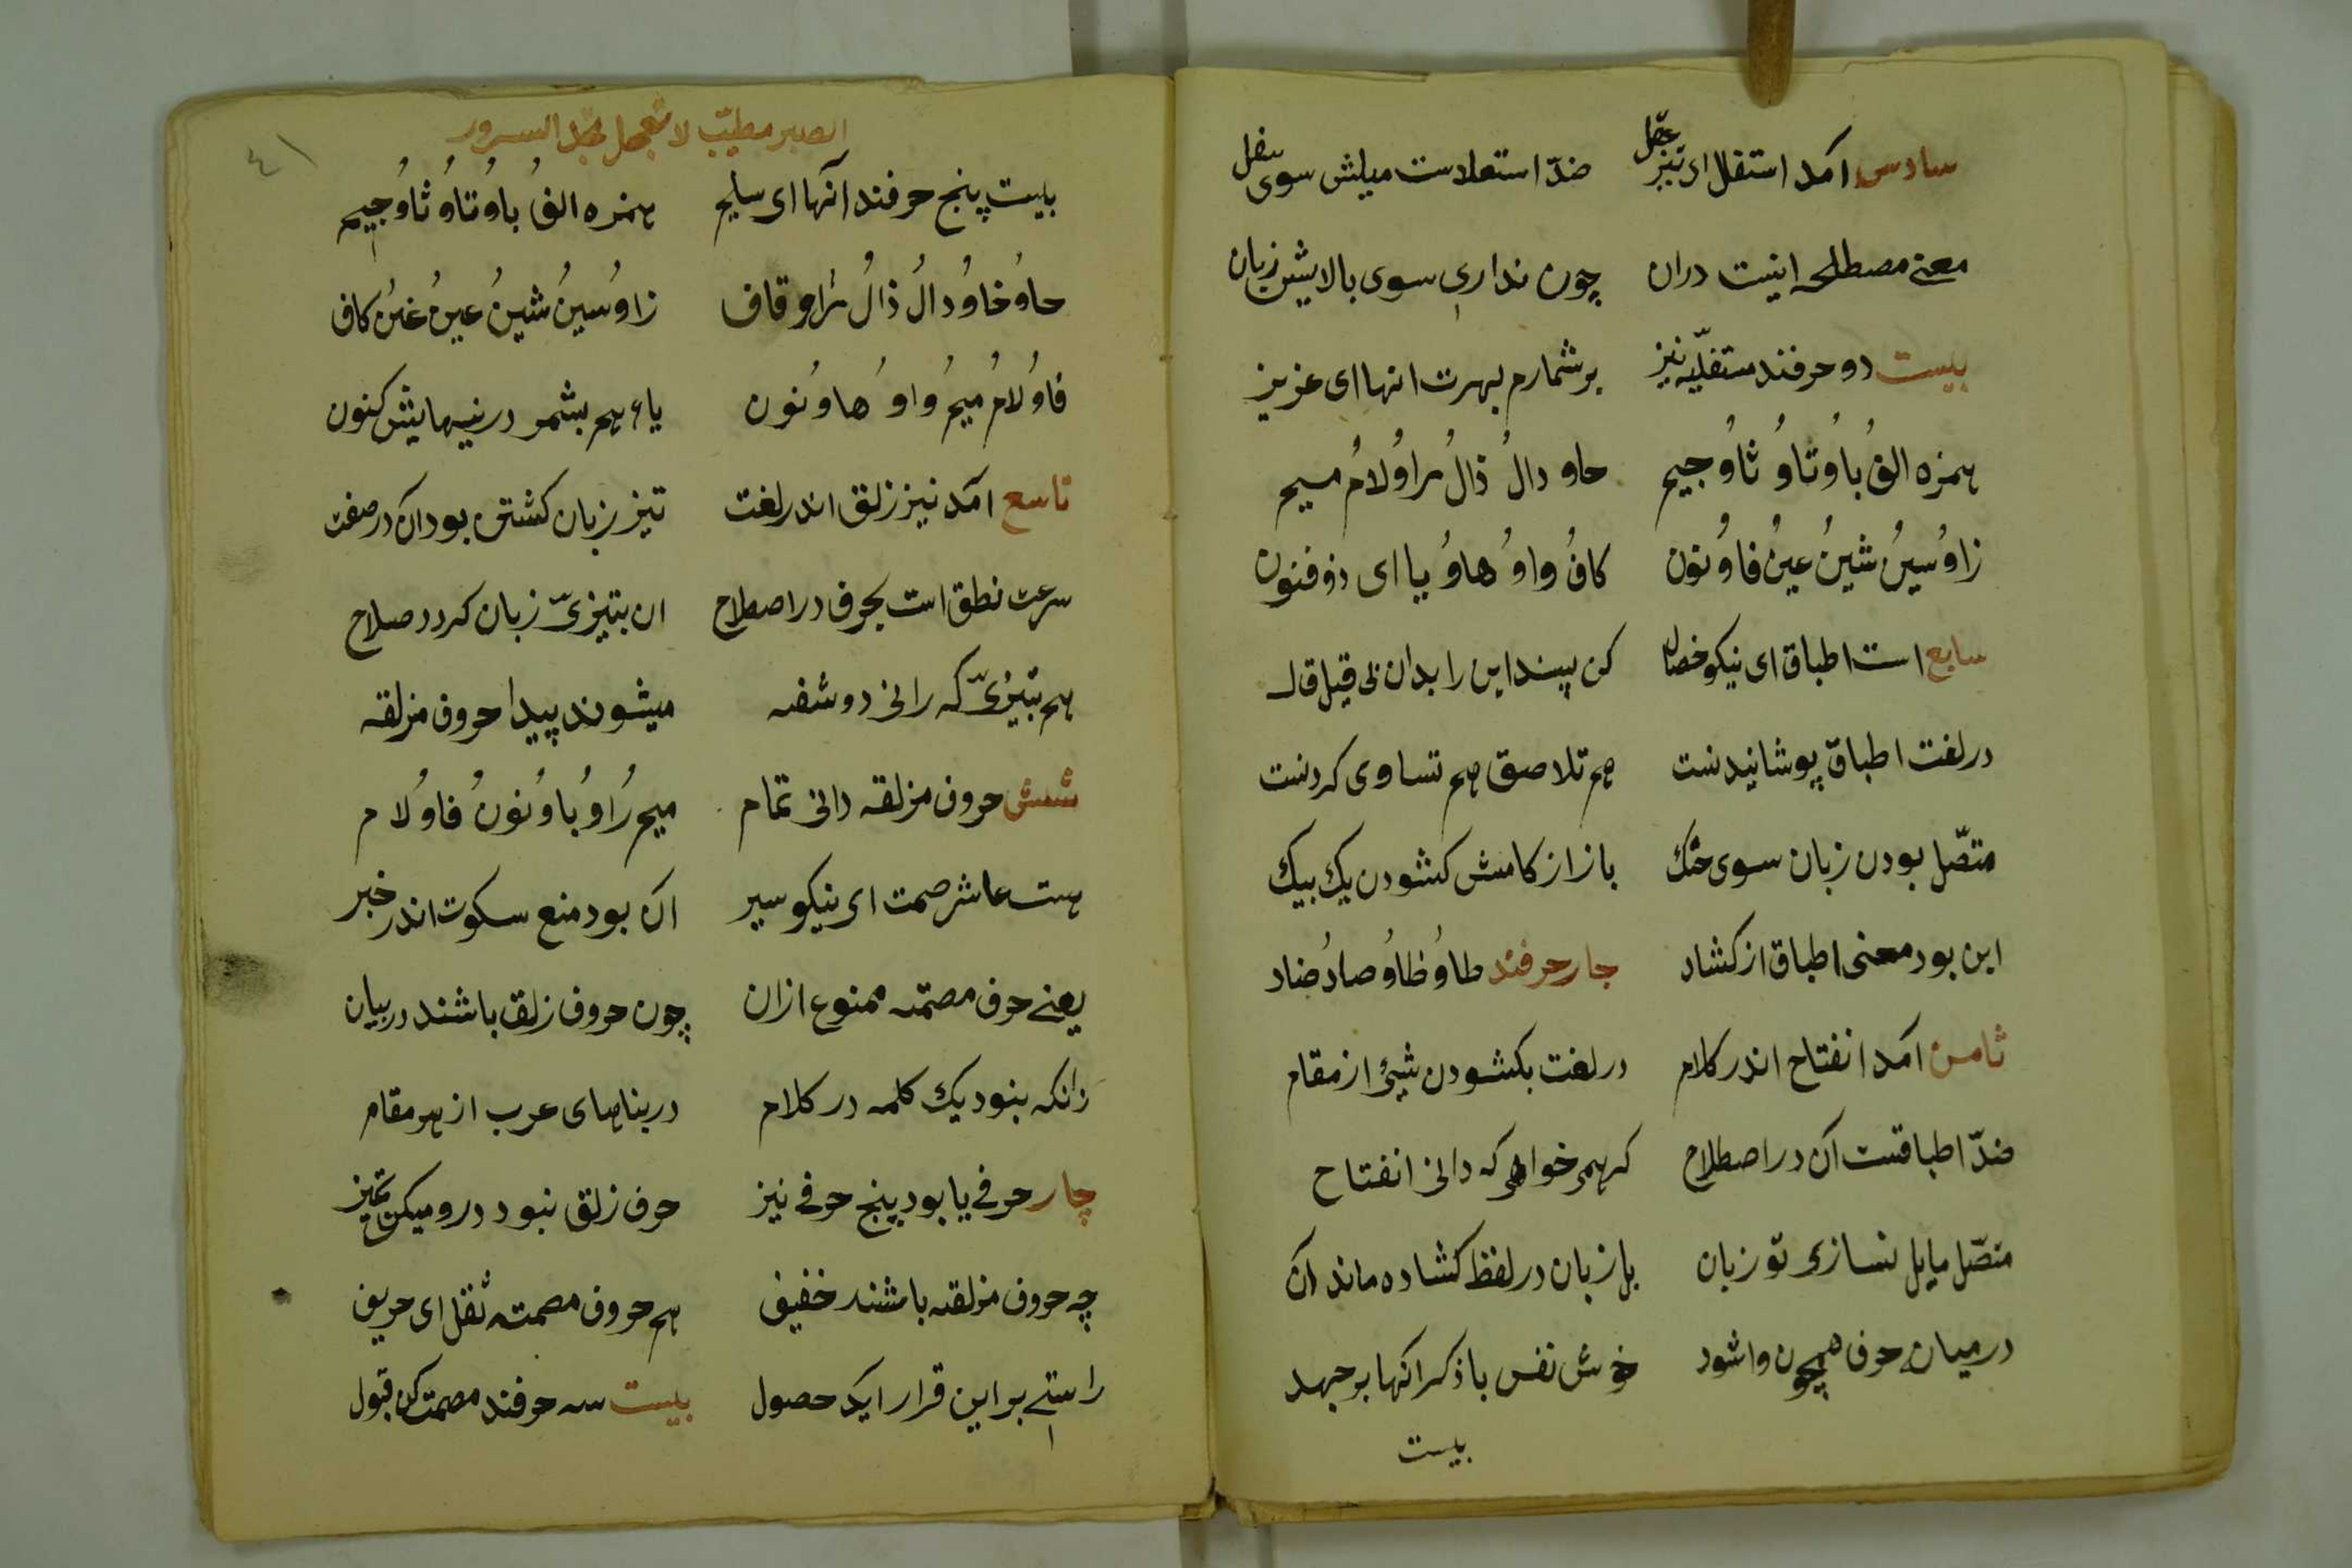 سادس آمد استفل ای تیز عقل ضدّ استعلاست میلش سوی سفل
معنے مصطلحه اینیت دران چون نداری سوی بالایش زبان
بیست دو حرفند مستفلّیه نیز برشمارم بهرت انها ای عزیز
همزه الفُ باوُ تاوُ ثاوُ جیم حاو دالُ ذالُ راوُ لامُ میم
زاوُ سینُ شینُ عینُ فاوُ نون کافُ واوُ هاوُ یا ای ذوفنون
سابع است اطباق ای نیکو خصال کن پسند این را بدان بی قیل قال
در لغت اطباق پوشانیدنست هم تلاصق هم تساوی کردنست
متصّل بودن زبان سوی حنک باز از کامش کشودن یک بیک
این بود معنی اطباق از کشاد چار حرفند طاوُ ظاوُ صادُ ضاد
ثامن آمد انفتاح اندر کلام در لغت بکشودن شیئ از مقام
ضدّ اطباقست آن در اصطلاح کر همی خواهی که دانی انفتاح
متصّل مایل نسازی تو زبان بل زبان در لفظ کشاده ماند آن
درمیان حرف همچون واشود خوش نفس با ذکر انها بر جهد
بیست
الصبر مطیّب لا تعجل تجد السرور
٤١
بیست پنج حرفند آنها ای سلیم همزه الفُ باوُ تاوُ ثاوُ جیم
حاوُ خاوُ دالُ ذالُ راو قاف زاوُ سینُ شینُ عینُ غینُ کاف
فاوُ لامُ میمُ واوُ هاوُ نون یاء هم بشمر درنیهایش کنون
تاسع آمد نیز زلق اندر لغت تیز زبان کشتن بود آن در صفت
سرعت نطق است بحرف در اصطلاح ان بتیزیّ زبان کردد صلاح
هم بتیزیّ که رانی دو شفه میشوند پیدا حروف مزلقه
شش حروف مزلقه دانی تمام میم رُاوُ باوُ نونُ فاوُ لام
هست عاشر صمت ای نیکو سیر آن بود منع سکوت اندر خبر
یعنے حرف مصمته ممنوع ازان چون حروف زلق باشند در بیان
زانکه بنود یک کلمه در کلام در بناهای عرب از هر مقام
چار حرفے یا بود پنج حرفے نیز حرف زلق نبود درو میکن تمیز
چه حروف مزلقه باشند خفیف هم حروف مصمته ثقل ای حریف
راستے بر این قرار اید حصول بیست سه حرفند مصمت کن قبول